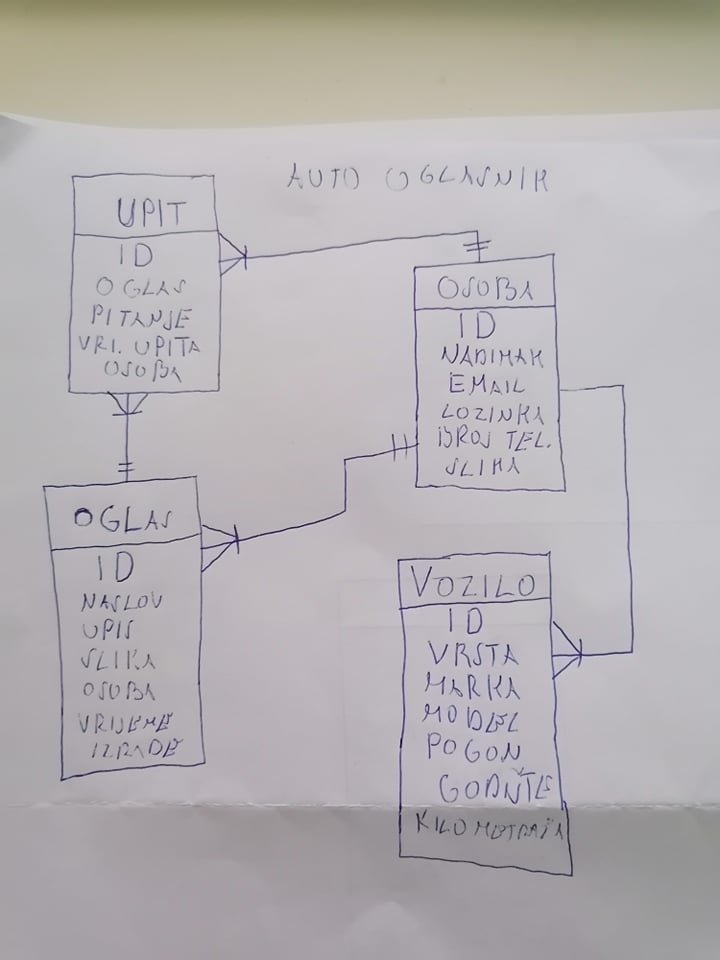 AUTO OGLASNIK
UPIT
ID
OGLAS
PITANJE
VRI. UPITA
OSOBA
OSOBA
ID
NADIMAK
EMAIL
LOZINKA
BROJ TEL.
SLIKA
OGLAS
ID
NASLOV
UPIS
SLIKA
OSOBA
VRIJEME
IZRADE
VOZILO
ID
VRSTA
MARKA
MODEL
POGON